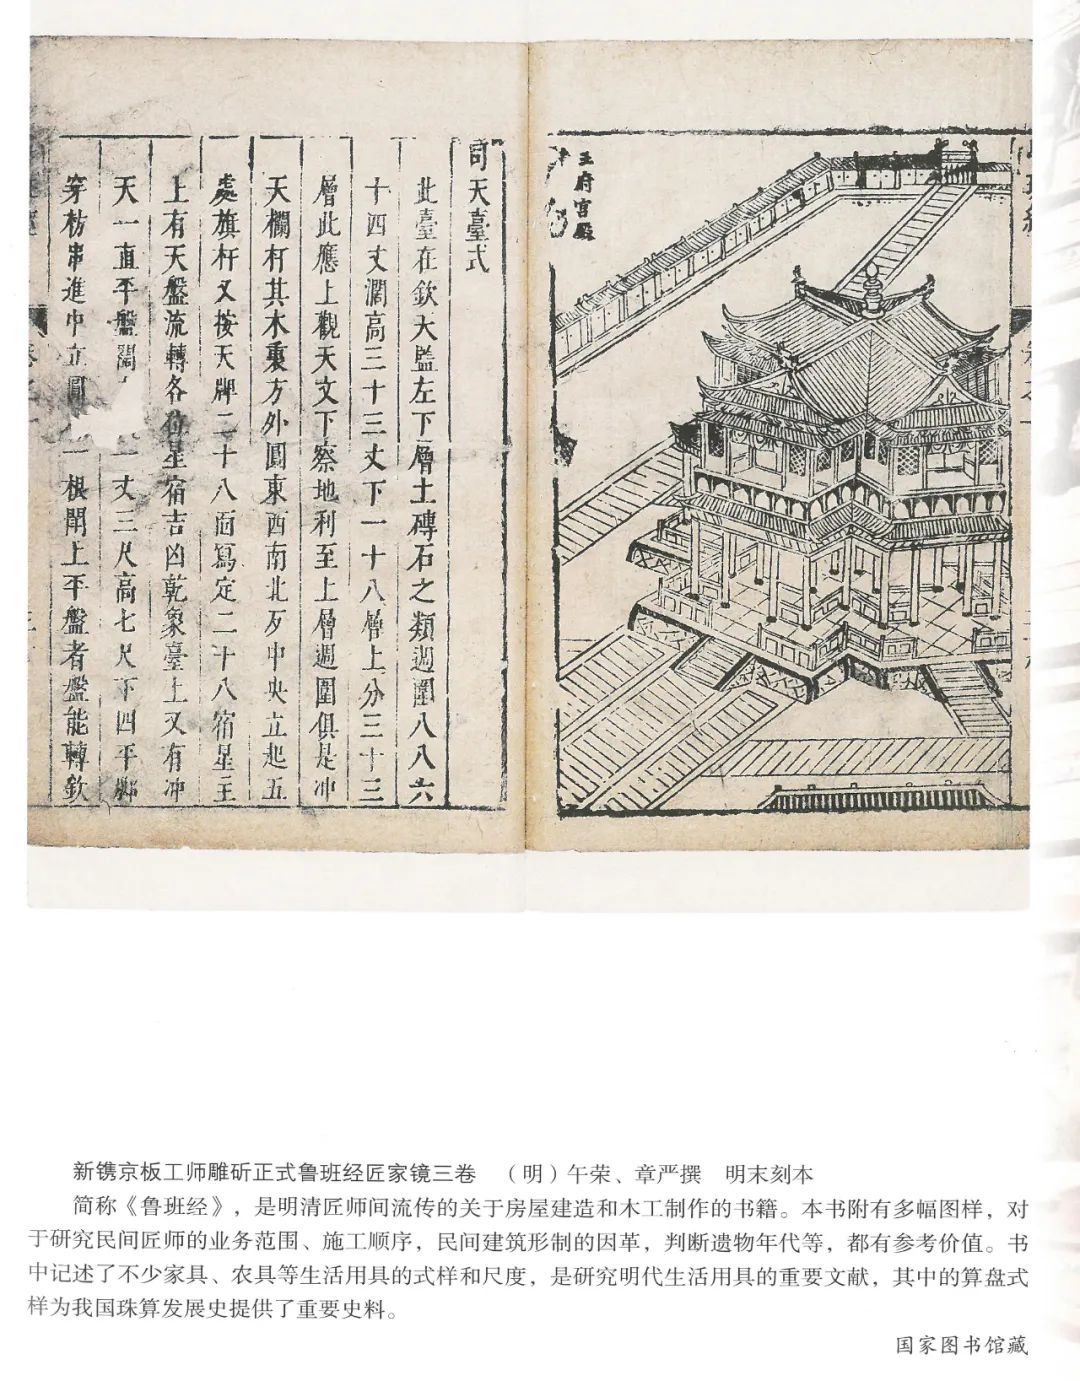 王府宮殿
司天臺式
此臺在欽大監左下層土磚石之類週圍八八六
十四丈濶高三十三丈下一十八層上分三十三
層此應上觀天文下察地利至上層週圍俱是冲
天欄杆其木裏方外圓東西南北及中央立起五
處旗杆又按天牌二十八面寫定二十八宿星主
上有天盤流轉各位星宿吉凶乾象臺上又有冲
天一直平盤濶 丈三尺高七尺下四平脚
穿枋串進中立圓 一根閗上平盤者盤能轉欽
新镌京板工师雕斫正式鲁班经匠家镜三卷 （明）午荣、章严撰 明末刻本
简称《鲁班经》，是明清匠师间流传的关于房屋建造和木工制作的书籍。本书附有多幅图样，对
于研究民间匠师的业务范围、施工顺序，民间建筑形制的因革，判断遗物年代等，都有参考价值。书
中记述了不少家具、农具等生活用具的式样和尺度，是研究明代生活用具的重要文献，其中的算盘式
样为我国珠算发展史提供了重要史料。
国家图书馆藏